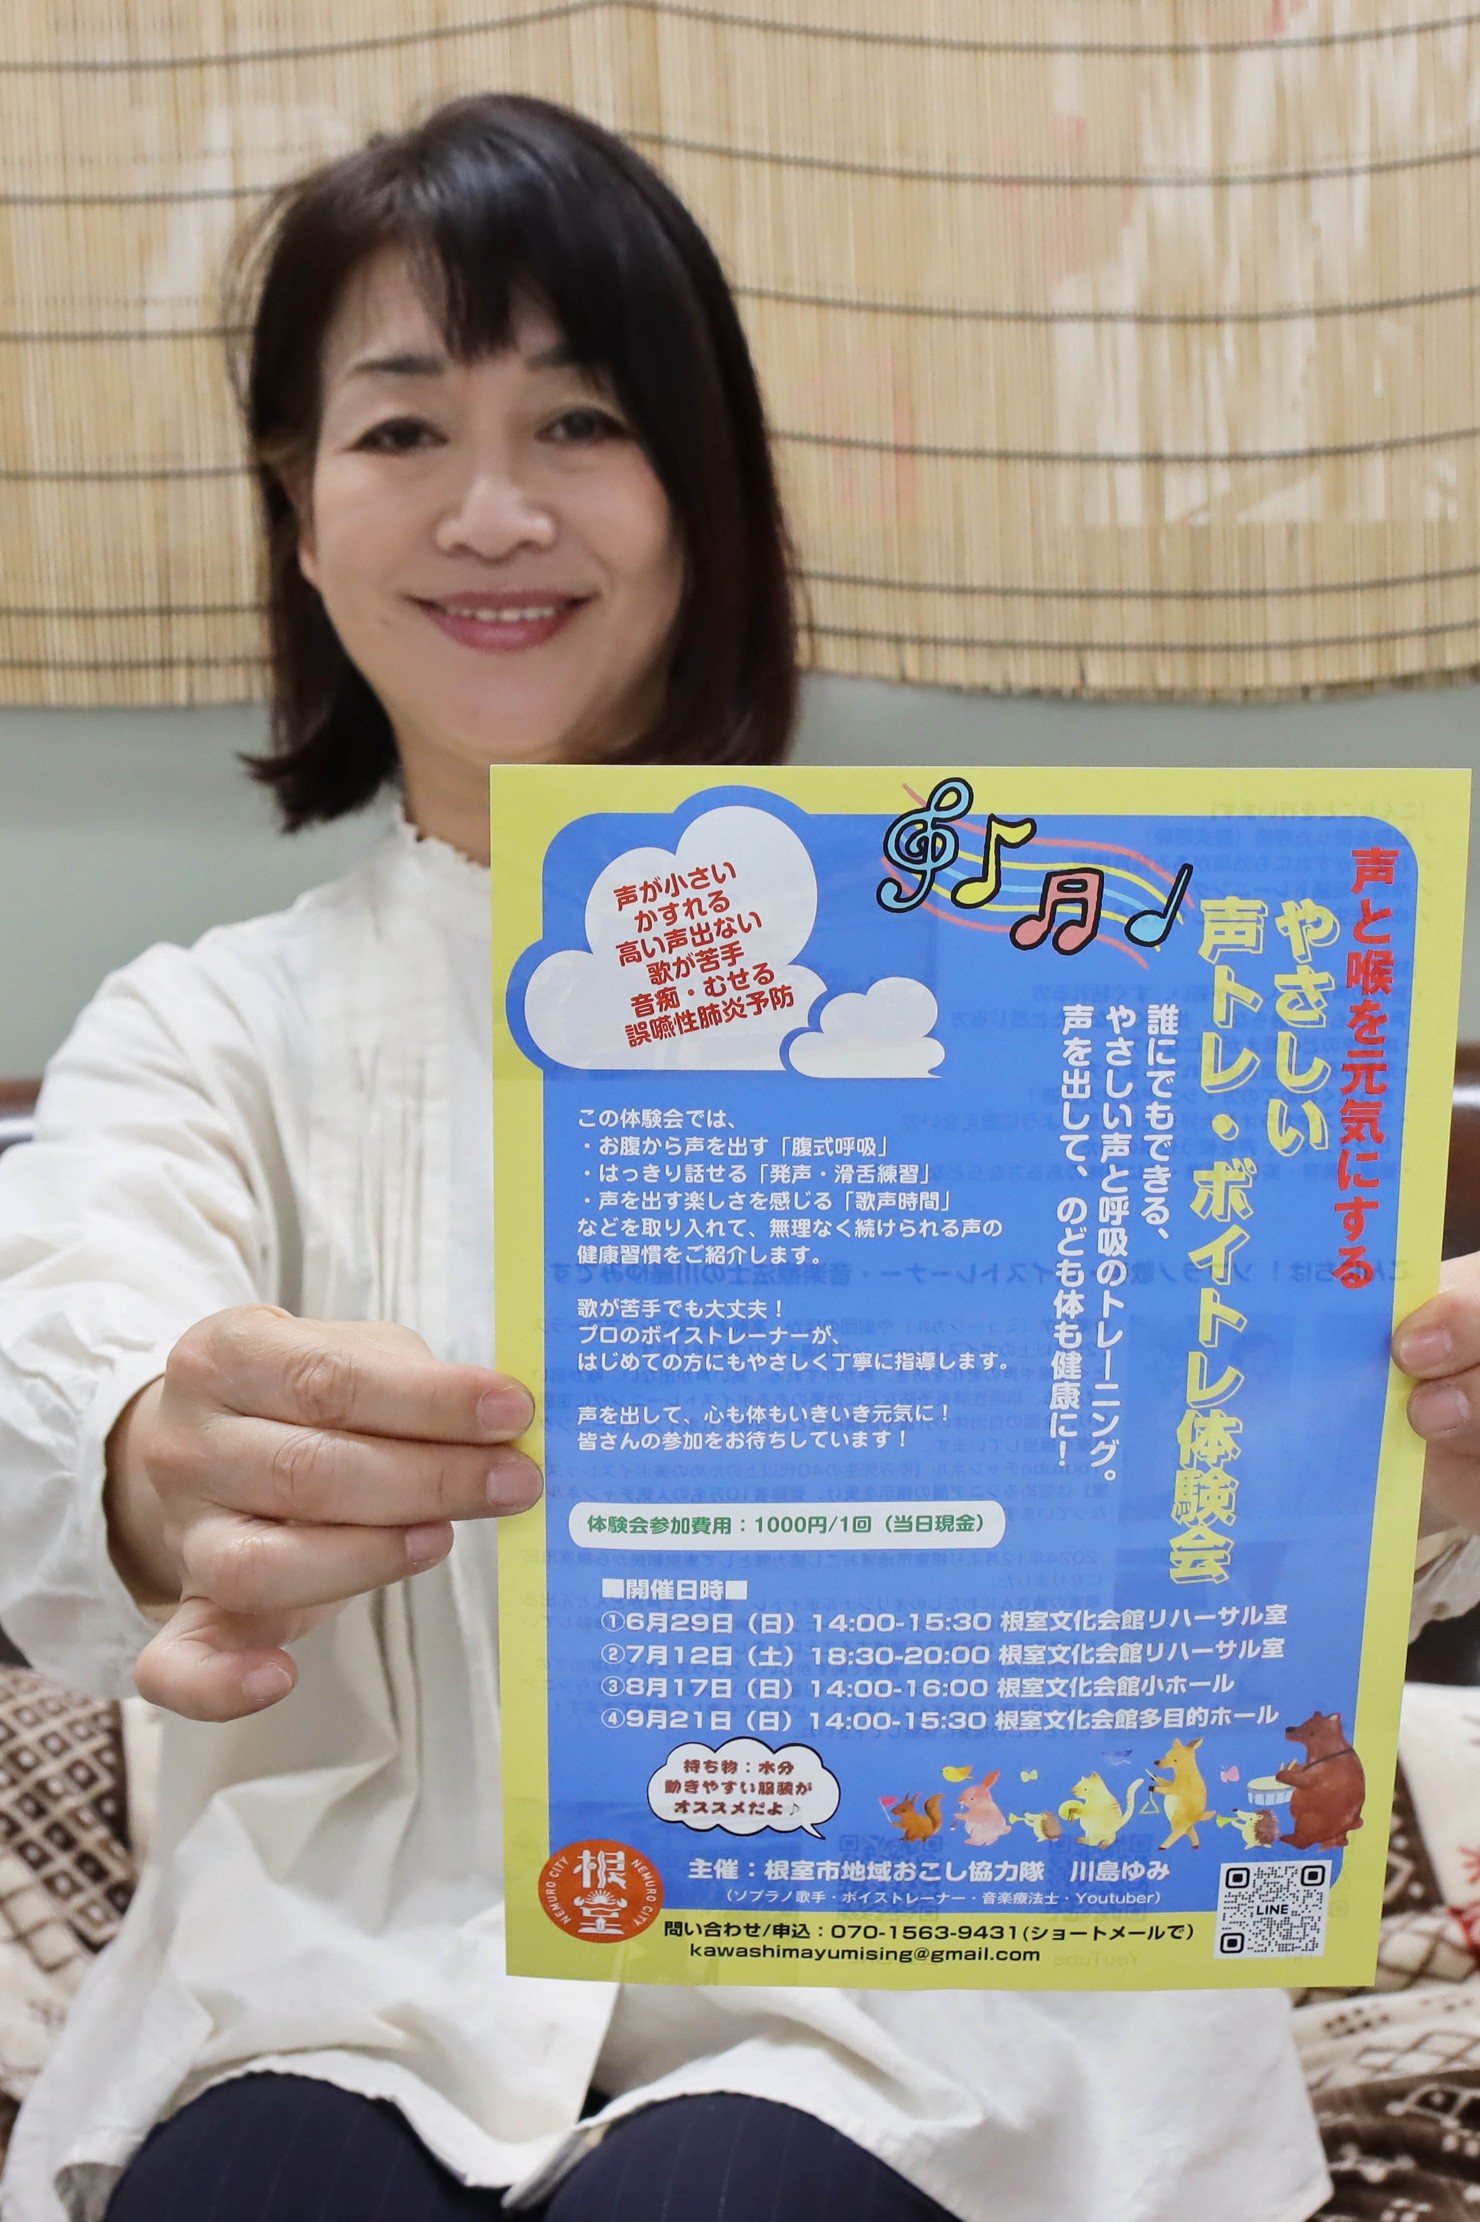 声と喉を元気にする
やさしい
声トレ・ボイトレ体験会
誰にでもできる、
やさしい声と呼吸のトレーニング。
声を出して、のども体も健康に！
声が小さい
かすれる
高い声出ない
歌が苦手
音痴・むせる
誤嚥性肺炎予防
この体験会では、
・お腹から声を出す「腹式呼吸」
・はっきり話せる「発声・滑舌練習」
・声を出す楽しさを感じる「歌声時間」
などを取り入れて、無理なく続けられる声の
健康習慣をご紹介します。
歌が苦手でも大丈夫！
プロのボイストレーナーが、
はじめての方にもやさしく丁寧に指導します。
声を出して、心も体もいきいき元気に！
皆さんの参加をお待ちしています！
体験会参加費用：1000円/1回（当日現金）
■開催日時■
①6月29日（日）14:00-15:30 根室文化会館リハーサル室
②7月12日（土）18:30-20:00 根室文化会館リハーサル室
③8月17日（日）14:00-16:00 根室文化会館小ホール
④9月21日（日）14:00-15:30 根室文化会館多目的ホール
持ち物：水分
動きやすい服装が
オススメだよ♪
主催：根室市地域おこし協力隊　川島ゆみ
（ソプラノ歌手・ボイストレーナー・音楽療法士・Youtuber）
根室
NEMURO CITY
NEMURO CITY
LINE
問い合わせ/申込：070-1563-9431(ショートメールで)
kawashimayumising@gmail.com